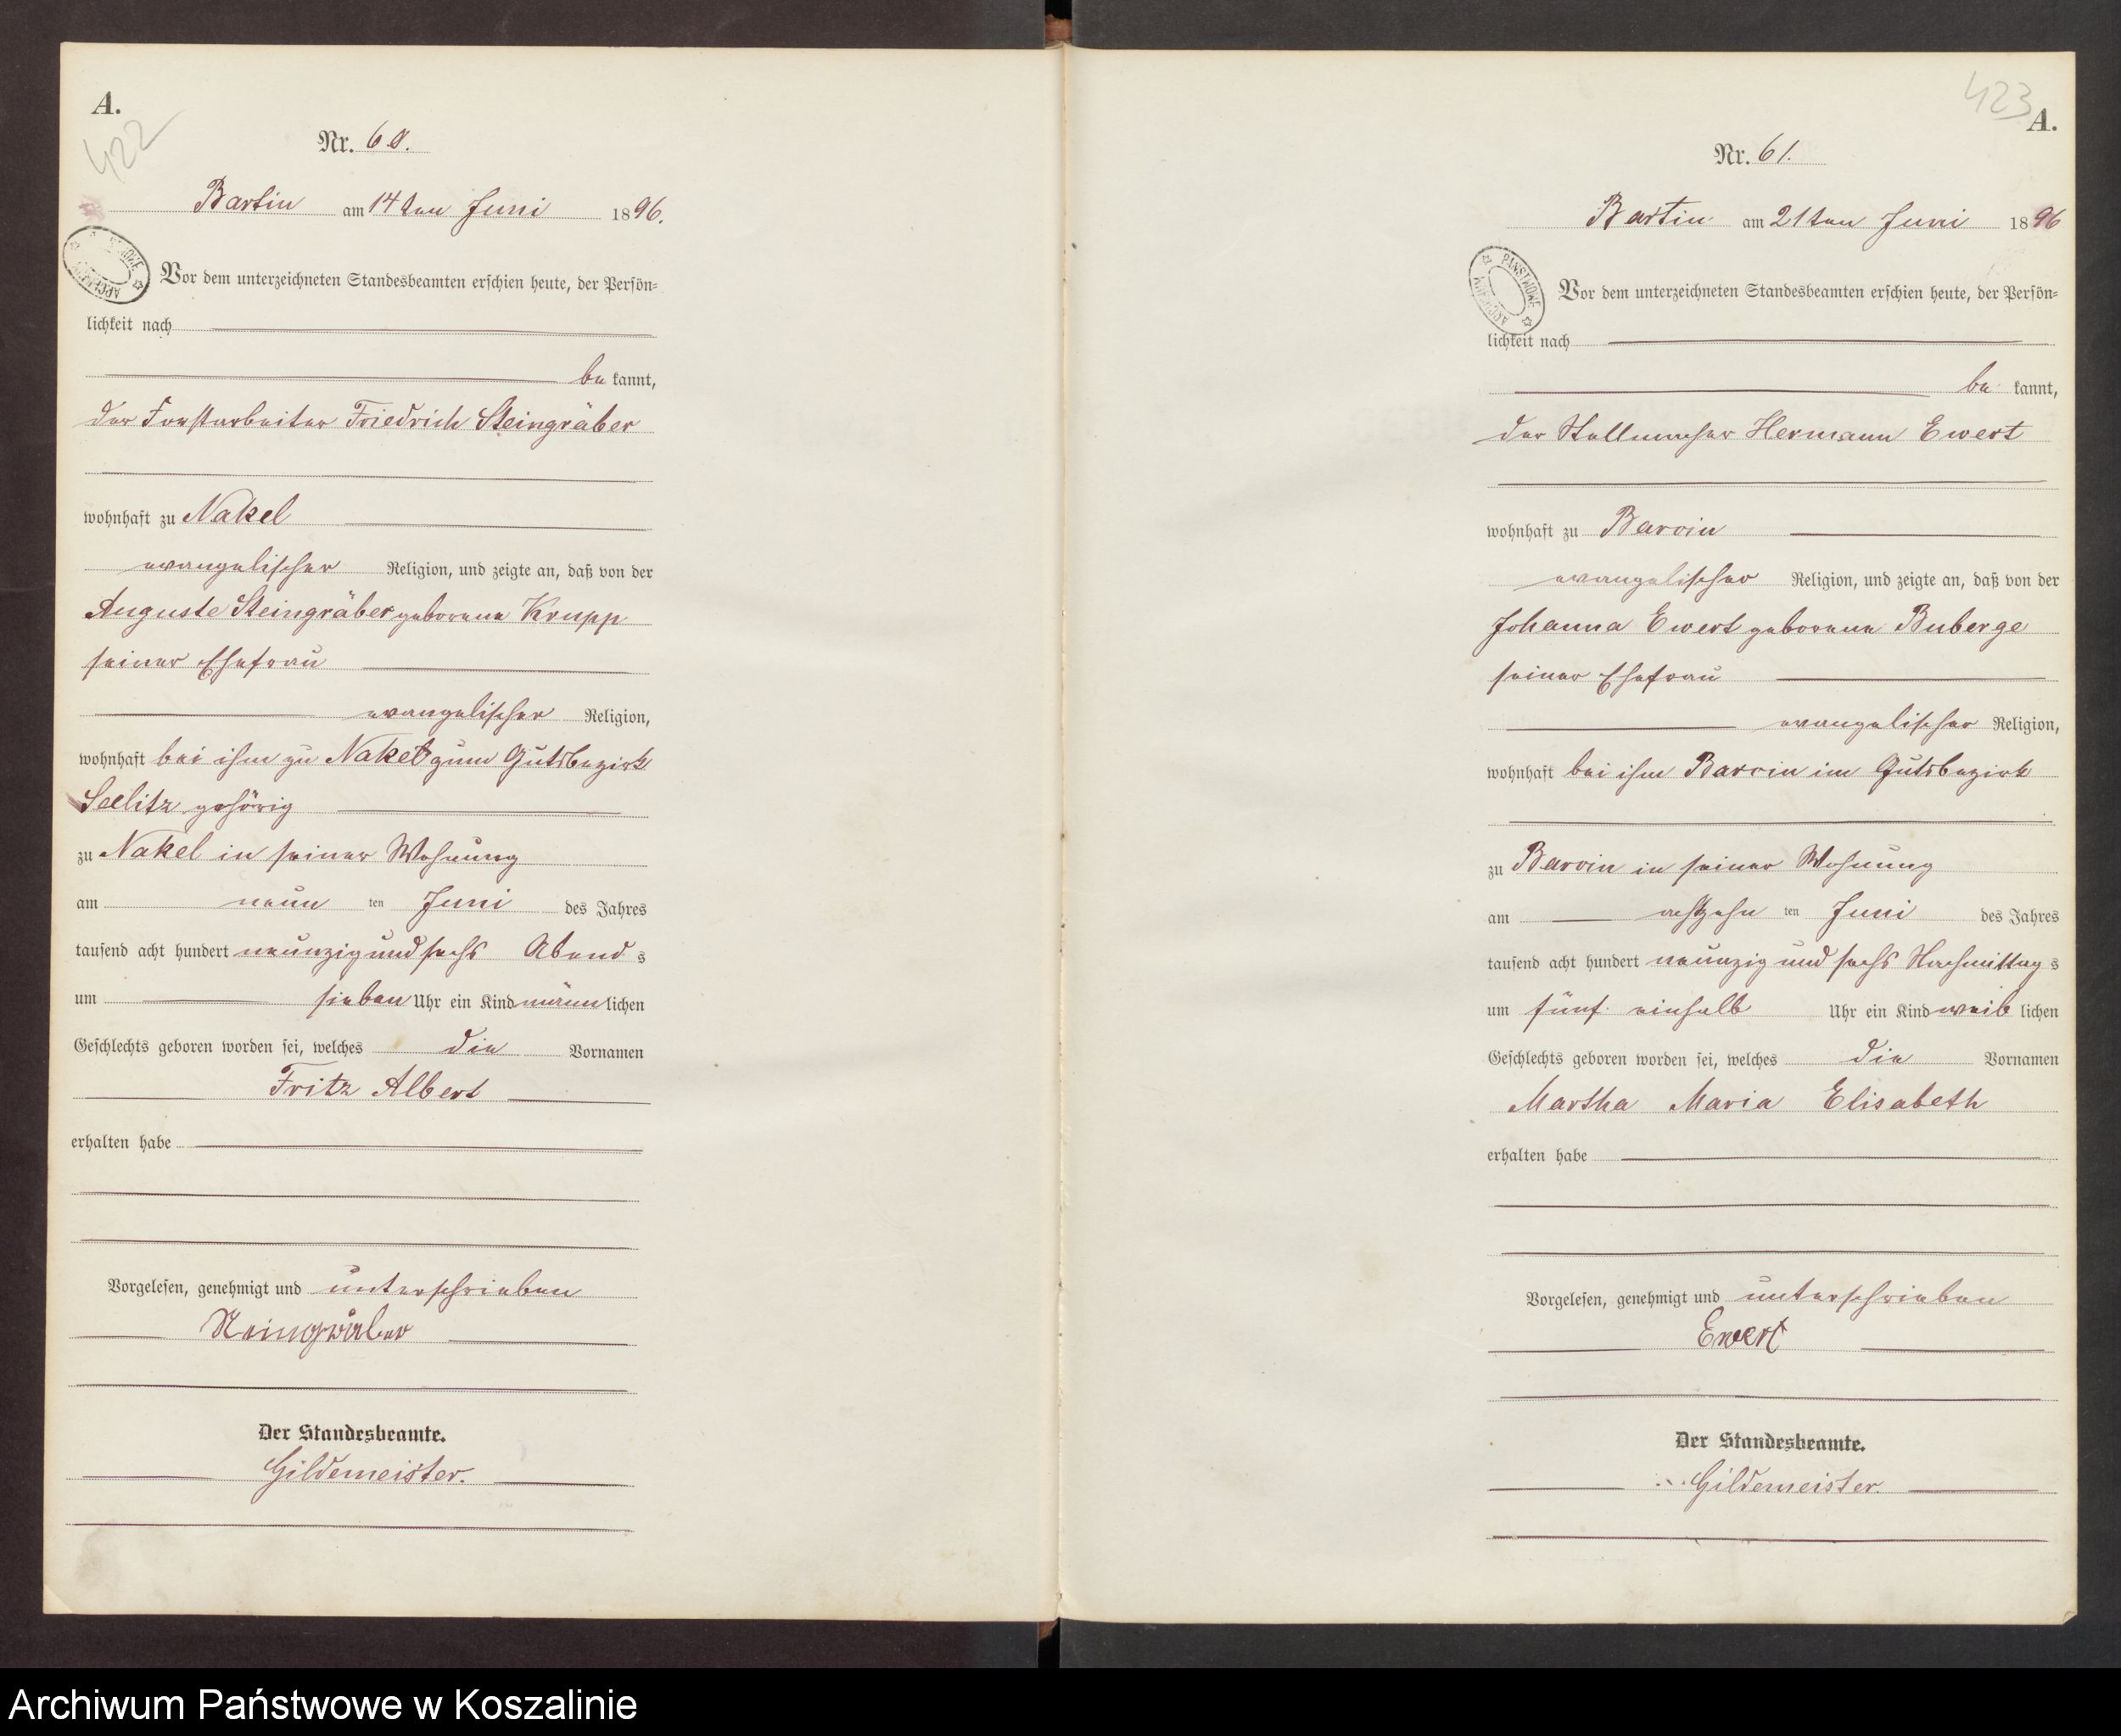 A.
422
Nr. 60.
Bartin am 14ten Juni 1896.
Vor dem unterzeichneten Standesbeamten erschien heute, der Persön=
lichkeit nach
be kannt,
der Forstarbeiter Friedrich Steingräber
wohnhaft zu Nakel
evangelischer Religion, und zeigte an, daß von der
Auguste Steingräber geborene Krupp
seiner Ehefrau
evangelischer Religion,
wohnhaft bei ihm zu Nakel zum Gutsbezirk
Seelitz gehörig
zu Nakel in seiner Wohnung
am neun ten Juni des Jahres
tausend acht hundert neunzig und sechs Abend s
um sieben Uhr ein Kind männ lichen
Geschlechts geboren worden sei, welches die Vornamen
Fritz Albert
erhalten habe
Vorgelesen, genehmigt und unterschrieben
Steingräber
Der Standesbeamte.
Gildemeister.
423
A.
Nr. 61.
Bartin am 21ten Juni 1896
PAŃSTWOWE
Vor dem unterzeichneten Standesbeamten erschien heute, der Persön=
lichkeit nach
be kannt,
der Stellmacher Hermann Ewert
wohnhaft zu Barvin
evangelischer Religion, und zeigte an, daß von der
Johanna Ewert geborene Buberge
seiner Ehefrau
evangelischer Religion,
wohnhaft bei ihm Barvin im Gutsbezirk
zu Barvin in seiner Wohnung
am achtzehn ten Juni des Jahres
tausend acht hundert neunzig und sechs Nachmittag s
um fünf einhalb Uhr ein Kind weib lichen
Geschlechts geboren worden sei, welches die Vornamen
Martha Maria Elisabeth
erhalten habe
Vorgelesen, genehmigt und unterschrieben
Ewert
Der Standesbeamte.
Gildemeister.
Archiwum Państwowe w Koszalinie